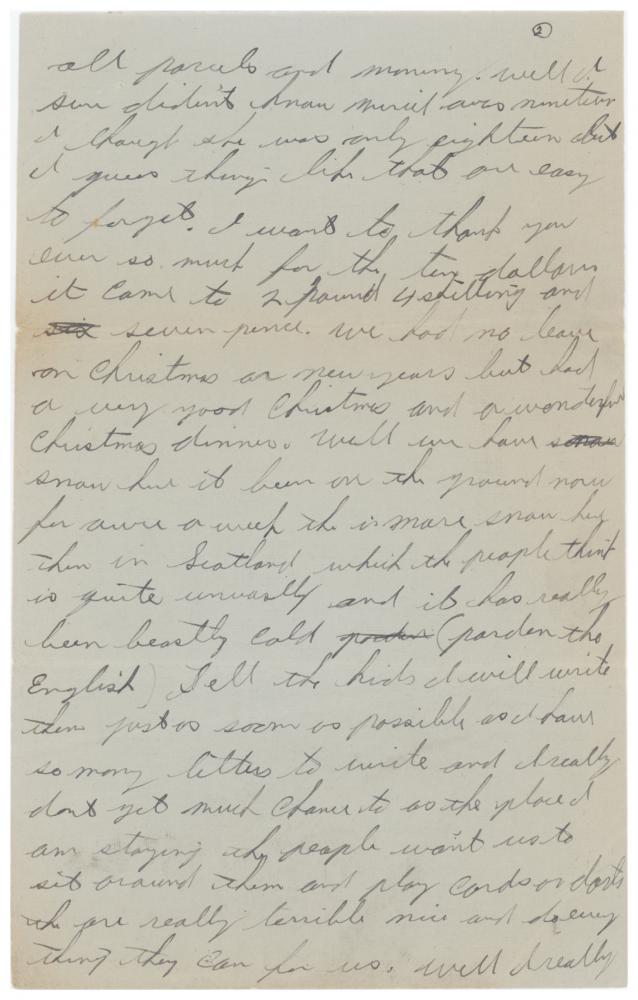 2
all parcels and mommy. well I
sure didin't know Muriel was nineteen
I though she was only eighteen but
I guess things like that are easy
to forget. I want to thank you
ever so much for the ten dollars
it came to 2 pound 4 shilling and
six seven pence. We had no leave
on Christmas or new years but had
a very good Christmas and a wonderful
Christmas dinner. Well we have
snow here it been on the ground now
for over a week the is more snow here
then in Scotland which the people think
is quite unusally and it has really
been beastly cold (parden the
English) Tell the kids I will write
them just as soon as possible as I have
so many letters to write and I really
dont get much chance to as the place I
am staying the people want us to
sit around them and play cards or darts
the are really terrible nice and do every
thing they can for us. Well I really